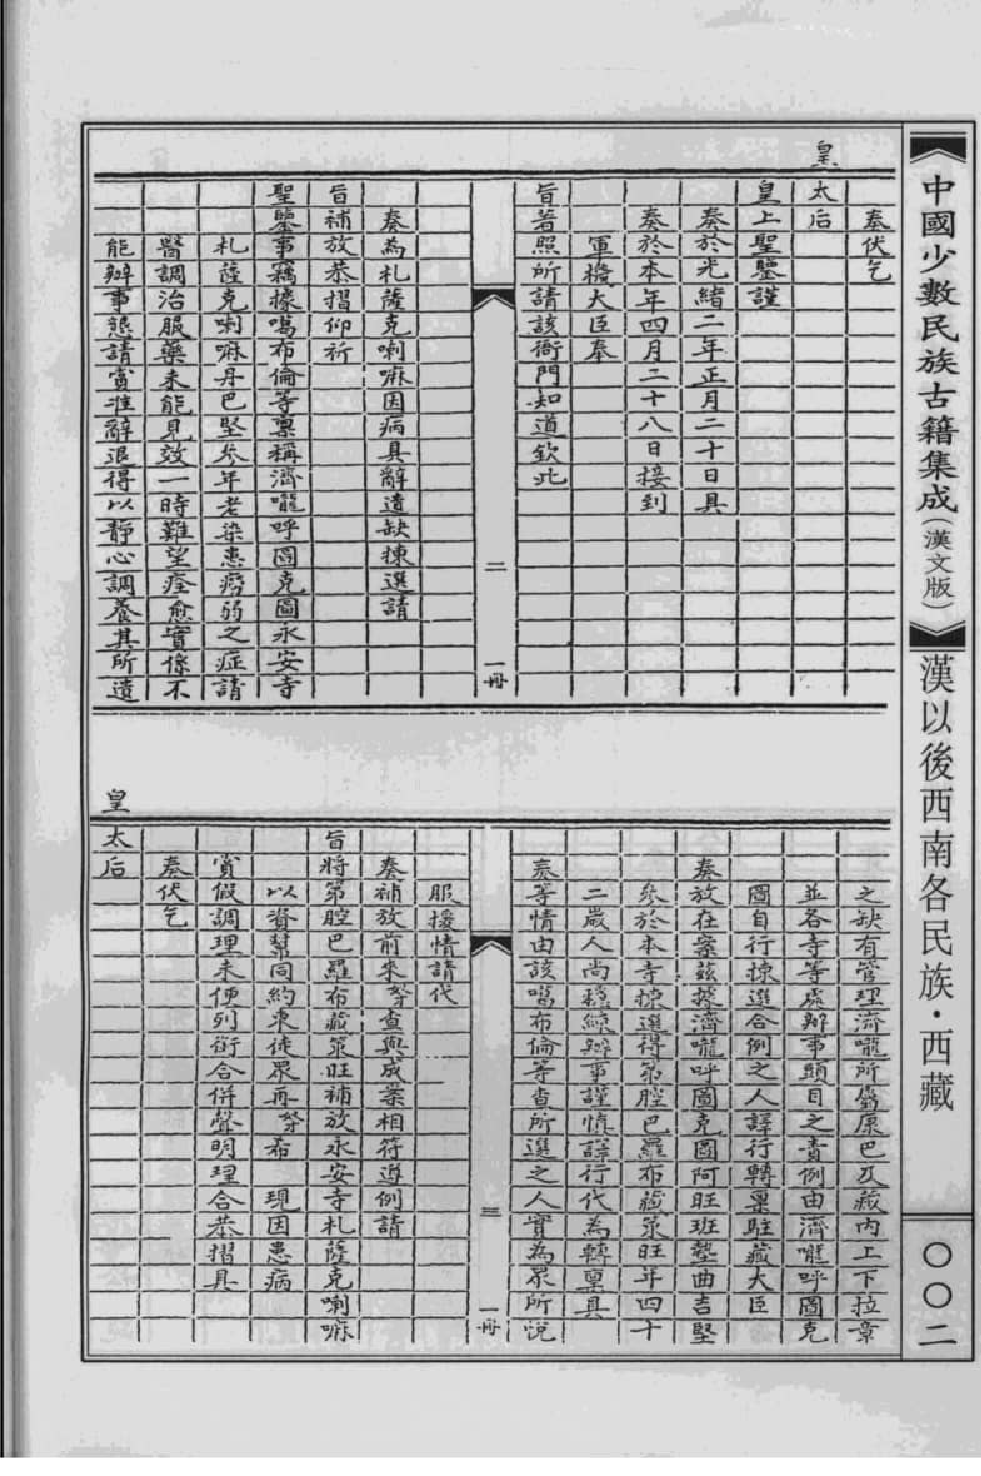 中國少數民族古籍集成（漢文版）
漢以後西南各民族·西藏
〇〇二
奏伏乞
皇太后
皇上聖鑒謹
奏於光緒二年正月二十日具
奏於本年四月二十八日接到
軍機大臣奉
旨着照所請該衙門知道欽此
二
一冊
奏為札薩克喇嘛因病具辭遺缺揀選請
旨補放恭摺仰祈
聖鑒事竊據噶布倫等稟稱濟嚨呼圖克圖永安寺
札薩克喇嘛丹巴堅參年老染患癆弱之症請
醫調治服藥未能見效一時難望痊愈實係不
能辦事懇請賞准辭退得以靜心調養其所遺
之缺有管理濟嚨所屬康巴及藏內上下拉章
並各寺等處辦事頭目之責例由濟嚨呼圖克
圖自行揀選合例之人譯行轉稟駐藏大臣
奏放在案茲據濟嚨呼圖克圖阿旺班墊曲吉堅
參於本寺揀選得第腔巴羅布藏策旺年四十
二歲人尚穩練辦事謹慎譯行代為轉稟具
奏等情由該噶布倫等查所選之人實為眾所悅
三
一冊
服援情請代
奏補放前來奴才查與成案相符遵例請
旨將第腔巴羅布藏策旺補放永安寺札薩克喇嘛
以資幫同約束徒眾再奴才希 現因患病
賞假調理未便列銜合併聲明理合恭摺具
奏伏乞
皇太后